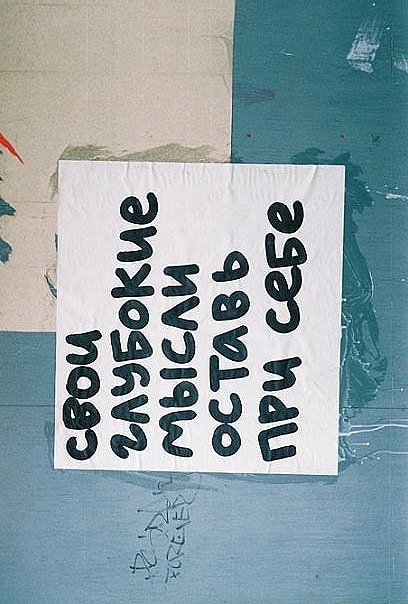 свои
глубокие
мысли
оставь
при себе
FOREVER